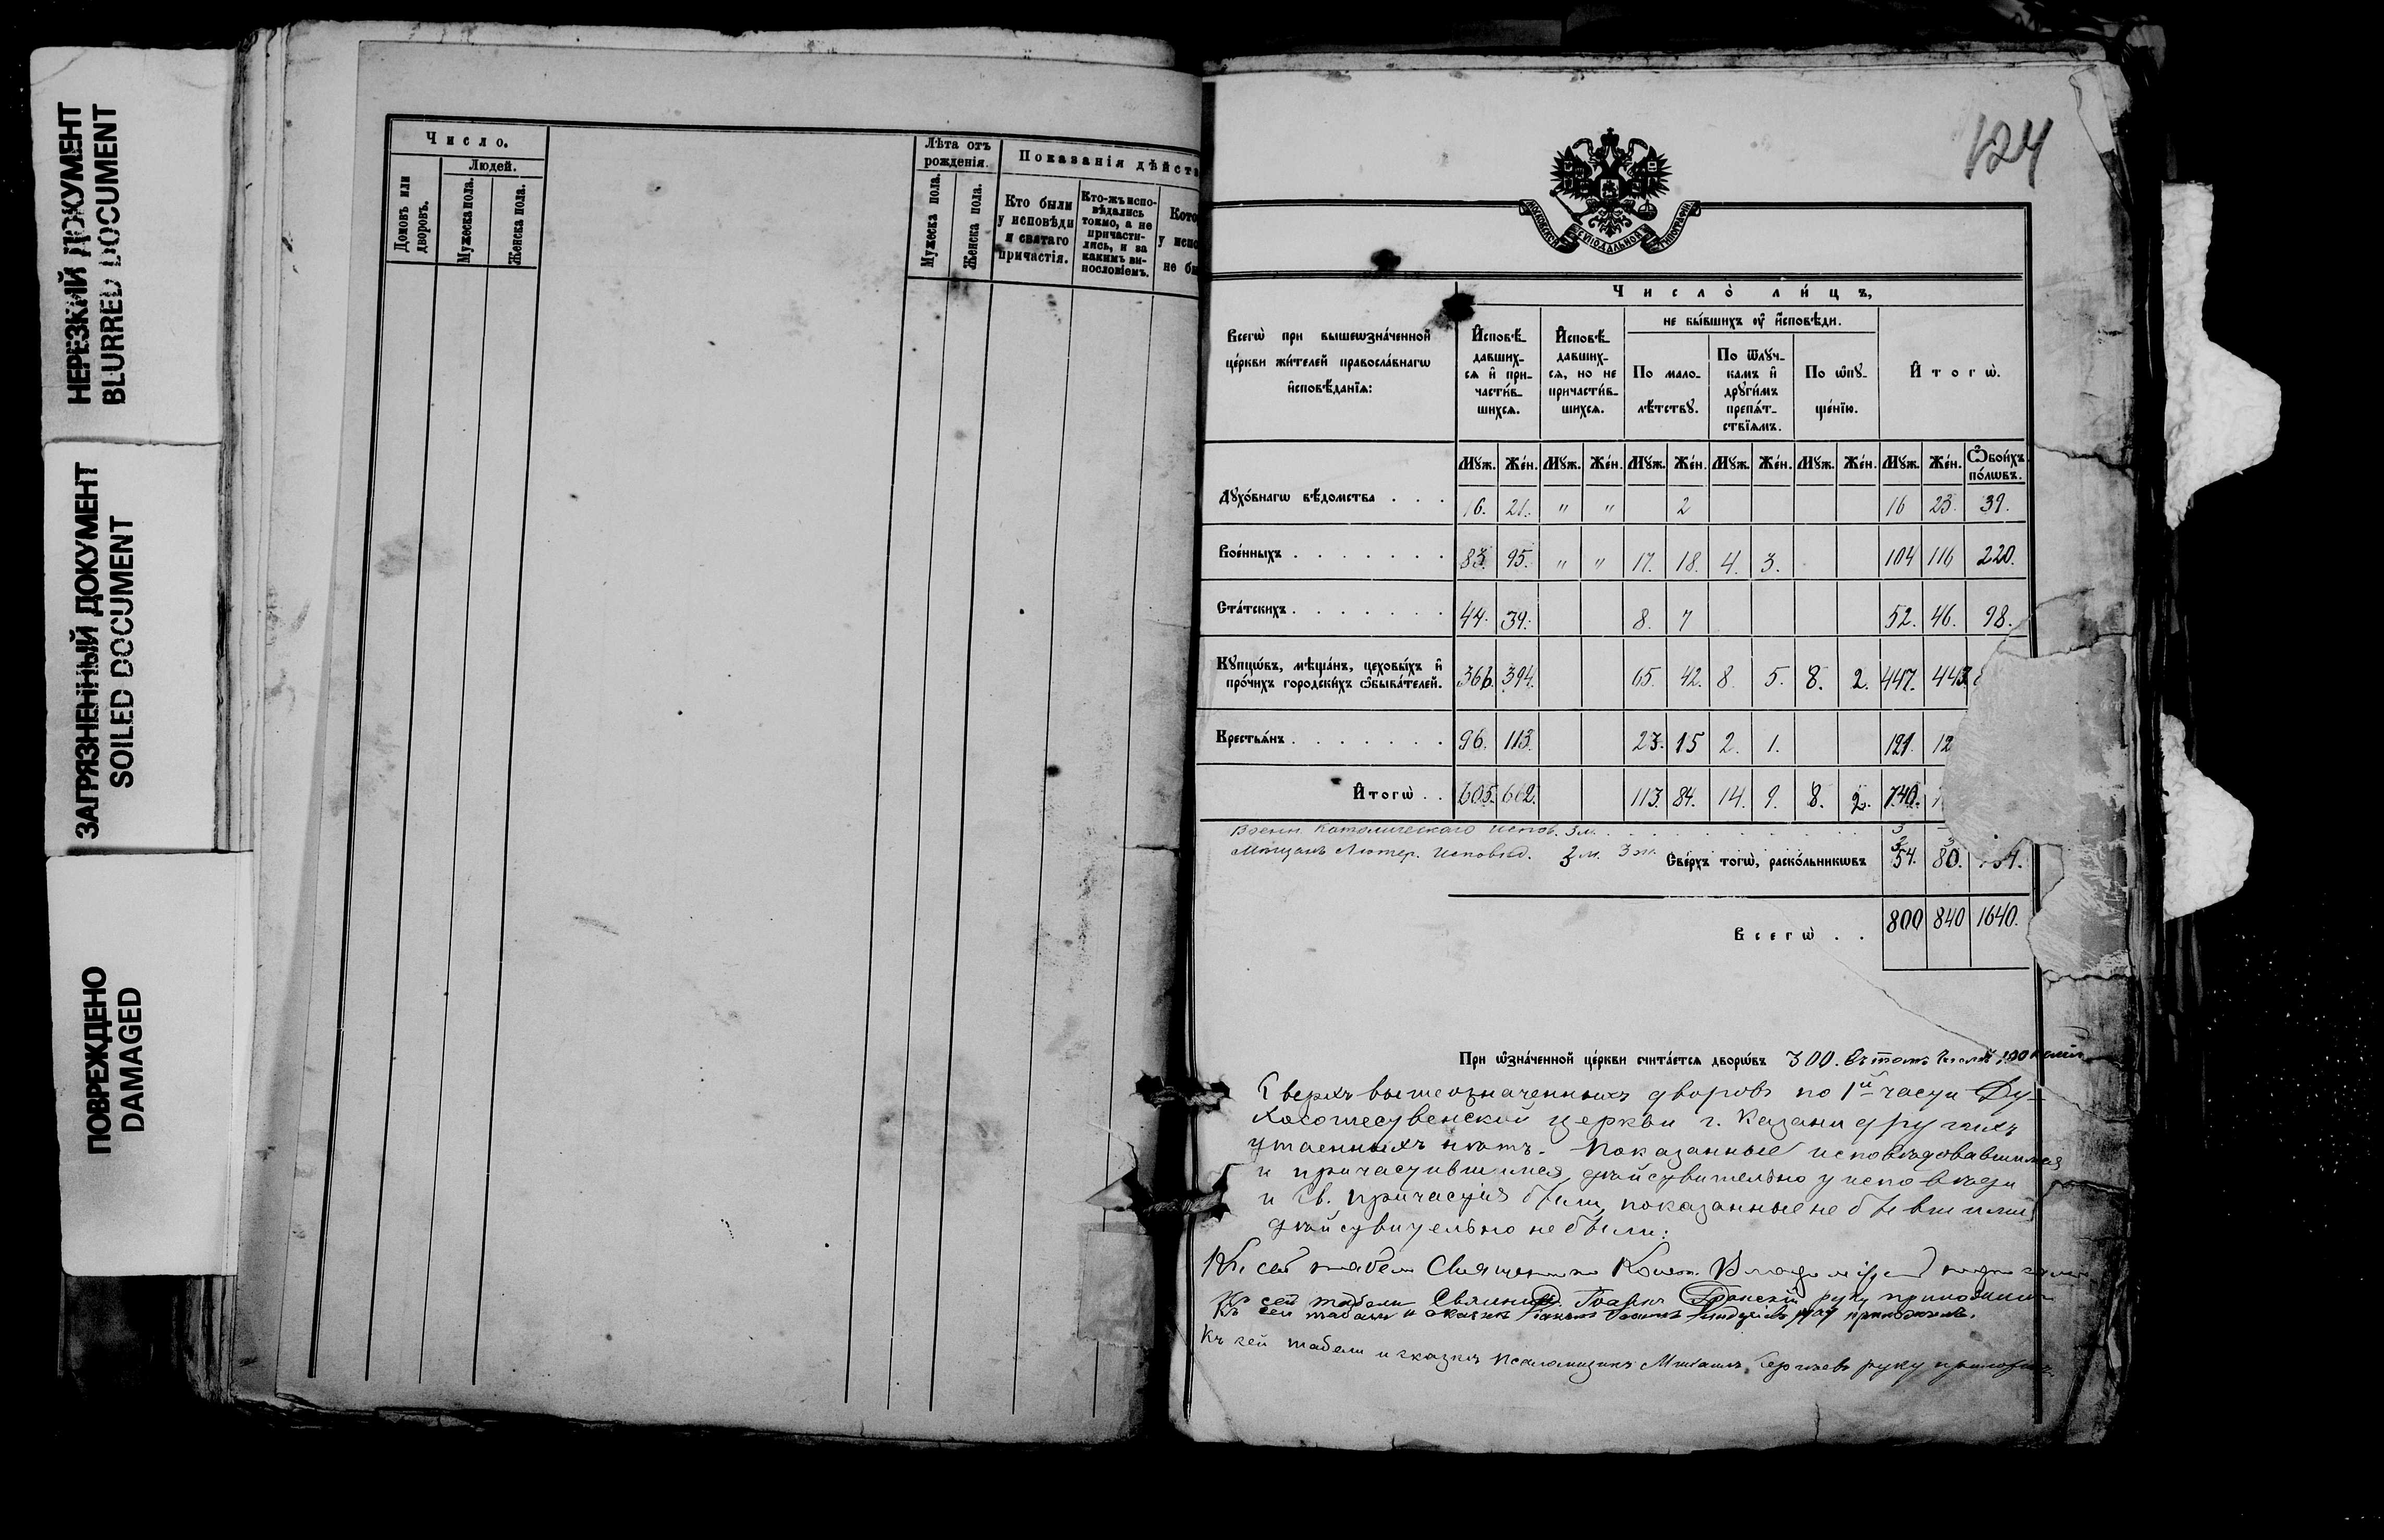 НЕРЕЗКИЙ ДОКУМЕНТ
BLURRED DOCUMENT
ЗАГРЯЗНЕННЫЙ ДОКУМЕНТ
SOILED DOCUMENT
ПОВРЕЖДЕНО
DAMAGED
Число.
Людей.
Домовъ или дворовъ.
Мужеска пола.
Женска пола.
Лѣта отъ рожденія.
Мужеска пола.
Женска пола.
Показанія дѣйств
Кто были у исповѣди и святаго причастія.
Кто-жъ исповѣдались токмо, а не причастились, и за какимъ винословіемъ.
Кото у испо не бы
124
МОСКОВСКОЙ СѴНОДАЛЬНОЙ ТИПОГРАФІИ
Число̀ ли́цъ,
Всегѡ̀ при вышеѡзна́ченной це́ркви жи́телей правосла́внагѡ и҆сповѣ́данїѧ:
И҆сповѣ́давшихсѧ и҆ причасти́вшихсѧ.
И҆сповѣ́давшихсѧ, но не причасти́вшихсѧ.
не бы́вшихъ ᲂу҆ и҆́сповѣди.
По малолѣ́тствꙋ.
По ѿлꙋ́чкамъ и҆ дрꙋги́мъ препѧ́тствїѧмъ.
По ѡ҆пꙋще́нїю.
И҆тогѡ̀.
Мꙋж. Же́н. Мꙋж. Же́н. Мꙋж. Же́н. Мꙋж. Же́н. Мꙋж. Же́н. Мꙋж. Же́н. Ѻ҆бои́хъ по́лѡвъ.
Дꙋхо́внагѡ вѣ́домства . . . 16. 21. " " 2 16 23. 39.
Вое́нныхъ . . . . . . . 83. 95. " " 17. 18. 4. 3. 104 116 220.
Ста́тскихъ . . . . . . . 44. 39. 8. 7 52. 46. 98.
Кꙋпцѡ́въ, мѣща́нъ, цеховы́хъ и҆ про́чихъ городски́хъ ѡ҆быва́телей. 366. 394. 65. 42. 8. 5. 8. 2. 447. 443.
Крестьѧ́нъ . . . . . . . 96. 113. 23. 15 2. 1. 121. 12
И҆тогѡ̀ . . 605. 662. 113. 84. 14. 9. 8. 2. 740.
Военн. Католическаго испов. 3 м. 3
Мѣщанъ Лютер. Исповѣд. 3 м. 3 ж. 3 3
Све́рхъ тогѡ̀, раско́льникѡвъ 54. 80.
Всегѡ̀ . . 800 840 1640.
При ѡ҆зна́ченной це́ркви счита́етсѧ дворѡ́въ 300. Въ томъ числѣ
Сверхъ вышеозначенныхъ дворовъ по 1й части Ду-
хосошественской церкви г. Казани другихъ
утаенныхъ нѣтъ. Показанные исповѣдовавшимися
и причастившимися дѣйствительно у исповѣди
и Св. причастія были, показанные не бывшими
дѣйствительно не были:
Къ сей табели Священникъ
Къ сей табели Священн. руку приложилъ
Къ сей табели и сказкѣ руку приложилъ.
Къ сей табели и сказкѣ псаломщикъ Михаилъ Сергѣевъ руку приложилъ